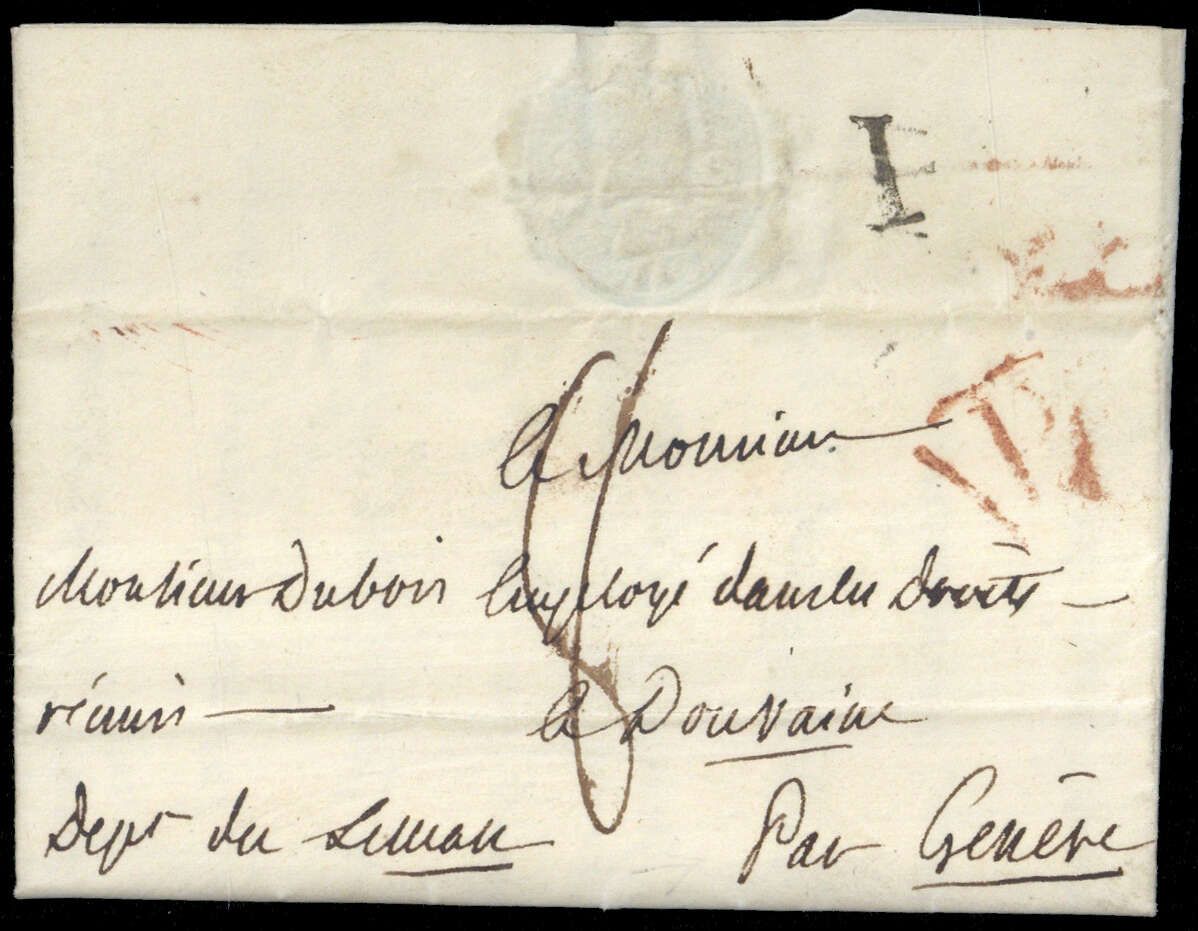 I
A Monsieur
Monsieur Dubois Employé dans les Droits
réunis
à Douvaine
Dept du Leman
Par Genève
8